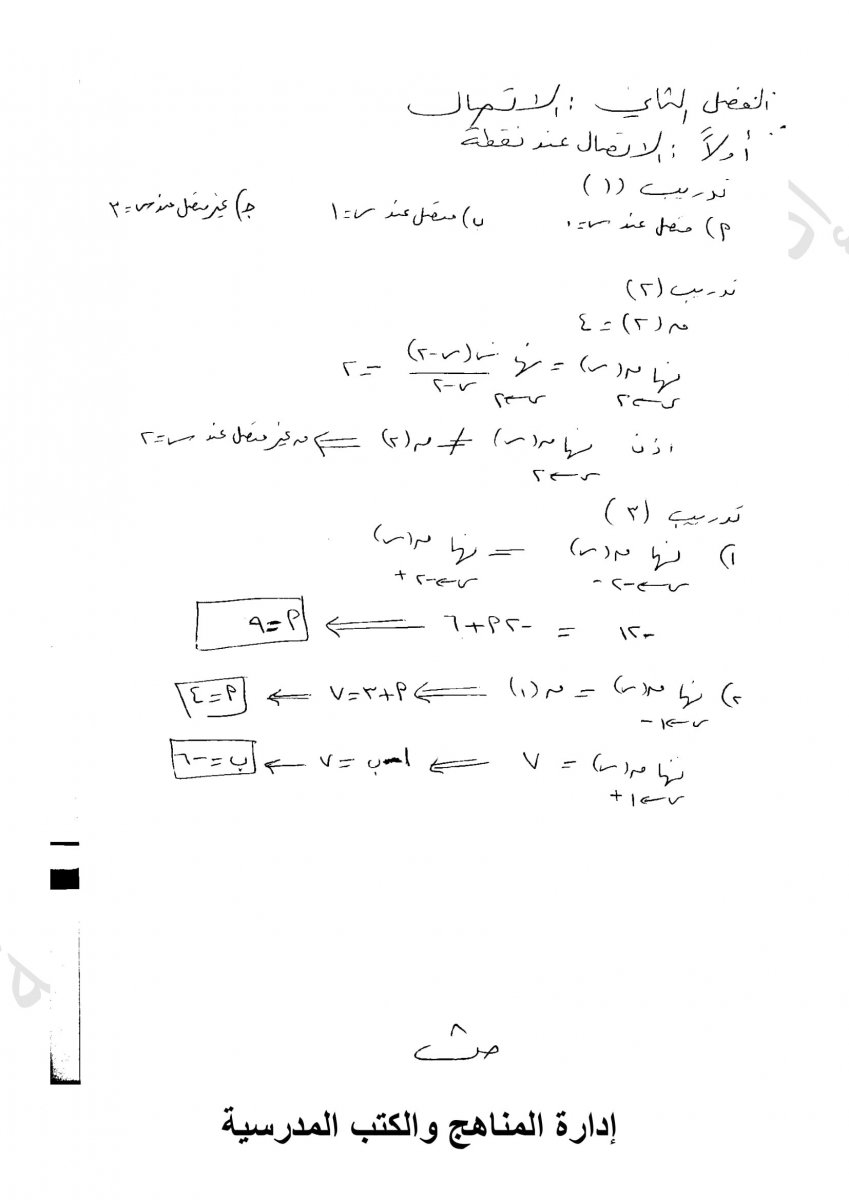 الفصل الثاني : الاتصال
أولاً : الاتصال عند نقطة
تدريب (١)
م) متصل عند س=٠ ب) متصل عند س=١ جـ) غير متصل عند س=٣
تدريب (٢)
ق(٢) = ٤
نها ق(س) = نها س(س-٢) / س-٢ = ٢
س←٢ س←٢
اذن نها ق(س) ≠ ق(٢) ⇐ ق غير متصل عند س=٢
س←٢
تدريب (٣)
١) نها ق(س) = نها ق(س)
س←-٢- س←-٢+
-١٢ = -٢م+٦ ⇐ م=٩
٢) نها ق(س) = ق(١) ⇐ م+٣=٧ ← م=٤
س←١-
نها ق(س) = ٧ ⇐ ١-ب=٧ ← ب=-٦
س←١+
٨
إدارة المناهج والكتب المدرسية